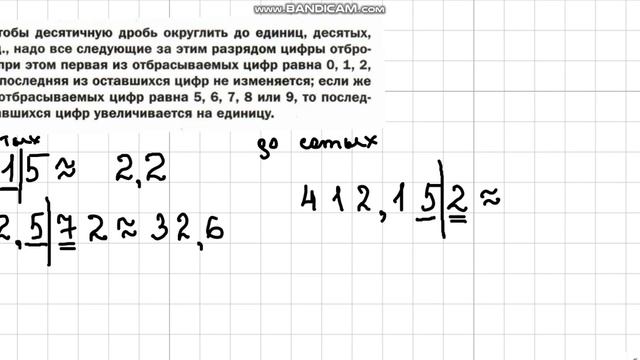 www.BANDICAM.com
тобы десятичную дробь округлить до единиц, десятых,
., надо все следующие за этим разрядом цифры отбро-
при этом первая из отбрасываемых цифр равна 0, 1, 2,
последняя из оставшихся цифр не изменяется; если же
отбрасываемых цифр равна 5, 6, 7, 8 или 9, то послед-
авшихся цифр увеличивается на единицу.
тых
до сотых
1|5 ≈ 2,2
412,15|2 ≈
2,5|72 ≈ 32,6